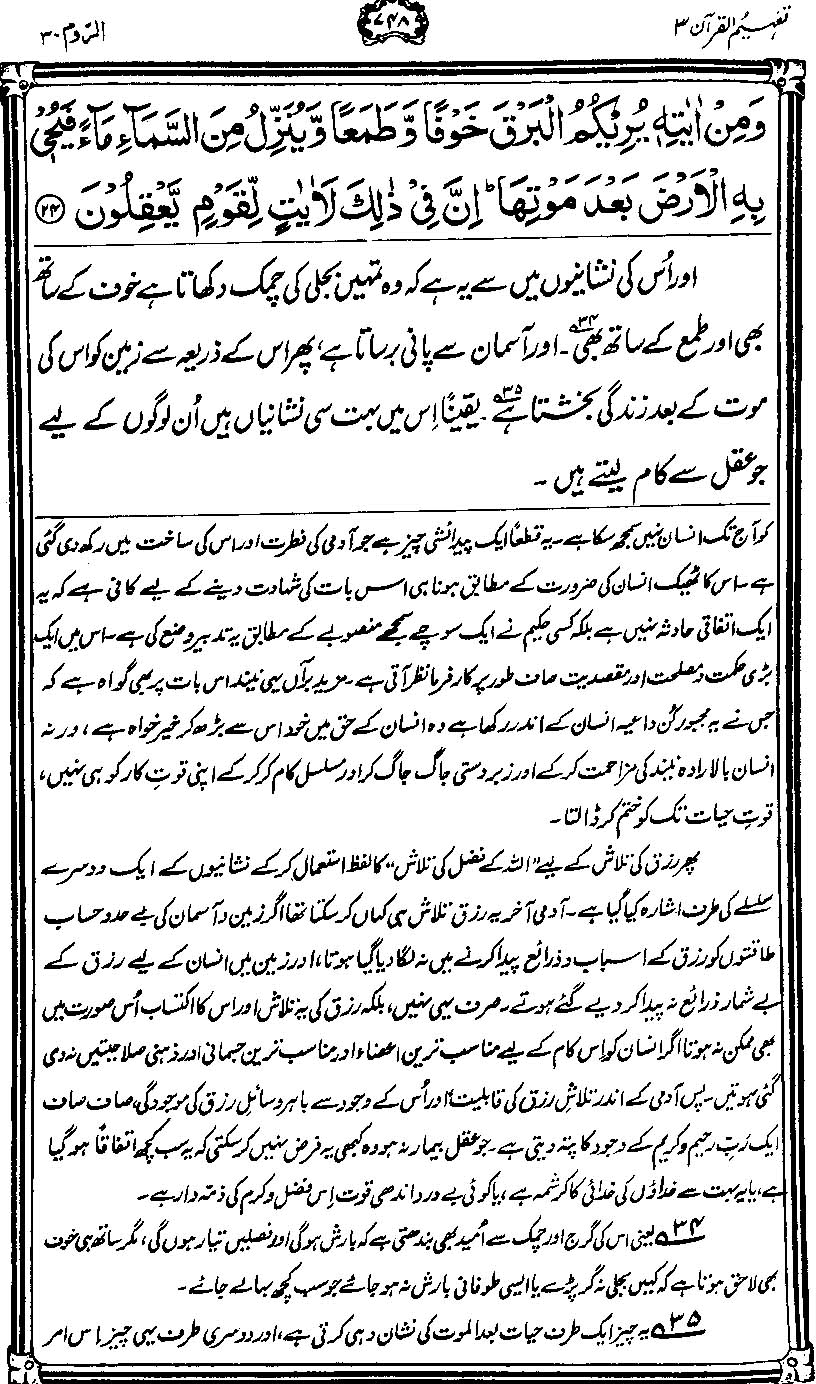 تفہیم القرآن ۳
۷۴۸
الرّوم ۳۰
وَمِنْ اٰيٰتِهٖ يُرِيْكُمُ الْبَرْقَ خَوْفًا وَّطَمَعًا وَّيُنَزِّلُ مِنَ السَّمَآءِ مَآءً فَيُحْيٖ
بِهِ الْاَرْضَ بَعْدَ مَوْتِهَا ؕ اِنَّ فِيْ ذٰلِكَ لَاٰيٰتٍ لِّقَوْمٍ يَّعْقِلُوْنَ ﴿۲۴﴾
اور اُس کی نشانیوں میں سے یہ ہے کہ وہ تمہیں بجلی کی چمک دکھاتا ہے خوف کے ساتھ
بھی اور طمع کے ساتھ بھی۳۴۔ اور آسمان سے پانی برساتا ہے، پھر اس کے ذریعہ سے زمین کو اس کی
موت کے بعد زندگی بخشتا ہے۳۵۔ یقیناً اِس میں بہت سی نشانیاں ہیں اُن لوگوں کے لیے
جو عقل سے کام لیتے ہیں۔
کو آج تک انسان نہیں سمجھ سکا ہے۔ یہ قطعاً ایک پیدائشی چیز ہے جو آدمی کی فطرت اور اس کی ساخت میں رکھ دی گئی
ہے۔ اس کا ٹھیک انسان کی ضرورت کے مطابق ہونا ہی اس بات کی شہادت دینے کے لیے کافی ہے کہ یہ
ایک اتفاقی حادثہ نہیں ہے بلکہ کسی حکیم نے ایک سوچے سمجھے منصوبے کے مطابق یہ تدبیر وضع کی ہے۔ اس میں ایک
بڑی حکمت و مصلحت اور مقصدیت صاف طور پر کارفرما نظر آتی ہے۔ مزید برآں یہی نیند اس بات پر بھی گواہ ہے کہ
جس نے یہ مجبور کُن داعیہ انسان کے اندر رکھا ہے وہ انسان کے حق میں خود اس سے بڑھ کر خیر خواہ ہے، ورنہ
انسان بالارادہ نیند کی مزاحمت کر کے اور زبردستی جاگ جاگ کر اور مسلسل کام کر کر کے اپنی قوتِ کار کو ہی نہیں،
قوتِ حیات تک کو ختم کر ڈالتا۔
پھر رزق کی تلاش کے لیے "اللہ کے فضل کی تلاش" کا لفظ استعمال کر کے نشانیوں کے ایک دوسرے
سلسلے کی طرف اشارہ کیا گیا ہے۔ آدمی آخر یہ رزق تلاش ہی کہاں کر سکتا تھا اگر زمین و آسمان کی بے حد و حساب
طاقتوں کو رزق کے اسباب و ذرائع پیدا کرنے میں نہ لگا دیا گیا ہوتا، اور زمین میں انسان کے لیے رزق کے
بے شمار ذرائع نہ پیدا کر دیے گئے ہوتے۔ صرف یہی نہیں، بلکہ رزق کی یہ تلاش اور اس کا اکتساب اُس صورت میں
بھی ممکن نہ ہوتا اگر انسان کو اِس کام کے لیے مناسب ترین اعضاء اور مناسب ترین جسمانی اور ذہنی صلاحیتیں نہ دی
گئی ہوتیں۔ پس آدمی کے اندر تلاشِ رزق کی قابلیت، اور اُس کے وجود سے باہر وسائلِ رزق کی موجودگی، صاف صاف
ایک ربِّ رحیم و کریم کے وجود کا پتہ دیتی ہے۔ جو عقل بیمار نہ ہو وہ کبھی یہ فرض نہیں کر سکتی کہ یہ سب کچھ اتفاقاً ہو گیا
ہے، یا یہ بہت سے خداؤں کی خدائی کا کرشمہ ہے، یا کوئی بے درد اندھی قوت اِس فضل و کرم کی ذمہ دار ہے۔
۳۴؎ یعنی اس کی گرج اور چمک سے اُمید بھی بندھتی ہے کہ بارش ہو گی اور فصلیں تیار ہوں گی، مگر ساتھ ہی خوف
بھی لاحق ہوتا ہے کہ کہیں بجلی نہ گر پڑے یا ایسی طوفانی بارش نہ ہو جائے جو سب کچھ بہا لے جائے۔
۳۵؎ یہ چیز ایک طرف حیات بعد الموت کی نشان دہی کرتی ہے، اور دوسری طرف یہی چیز اِس امر